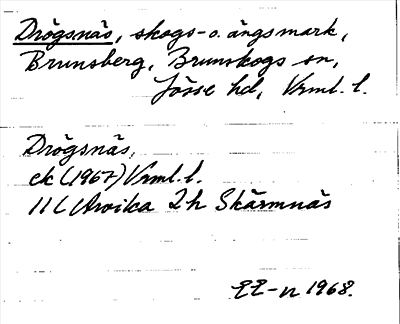 Drögsnäs, skogs- o. ängsmark,
Brunsberg, Brunskogs sn,
Jösse hd, Vrml. l.
Drögsnäs,
ek (1967) Vrml. l.
11 C Arvika 2 h Skärmnäs
1968.